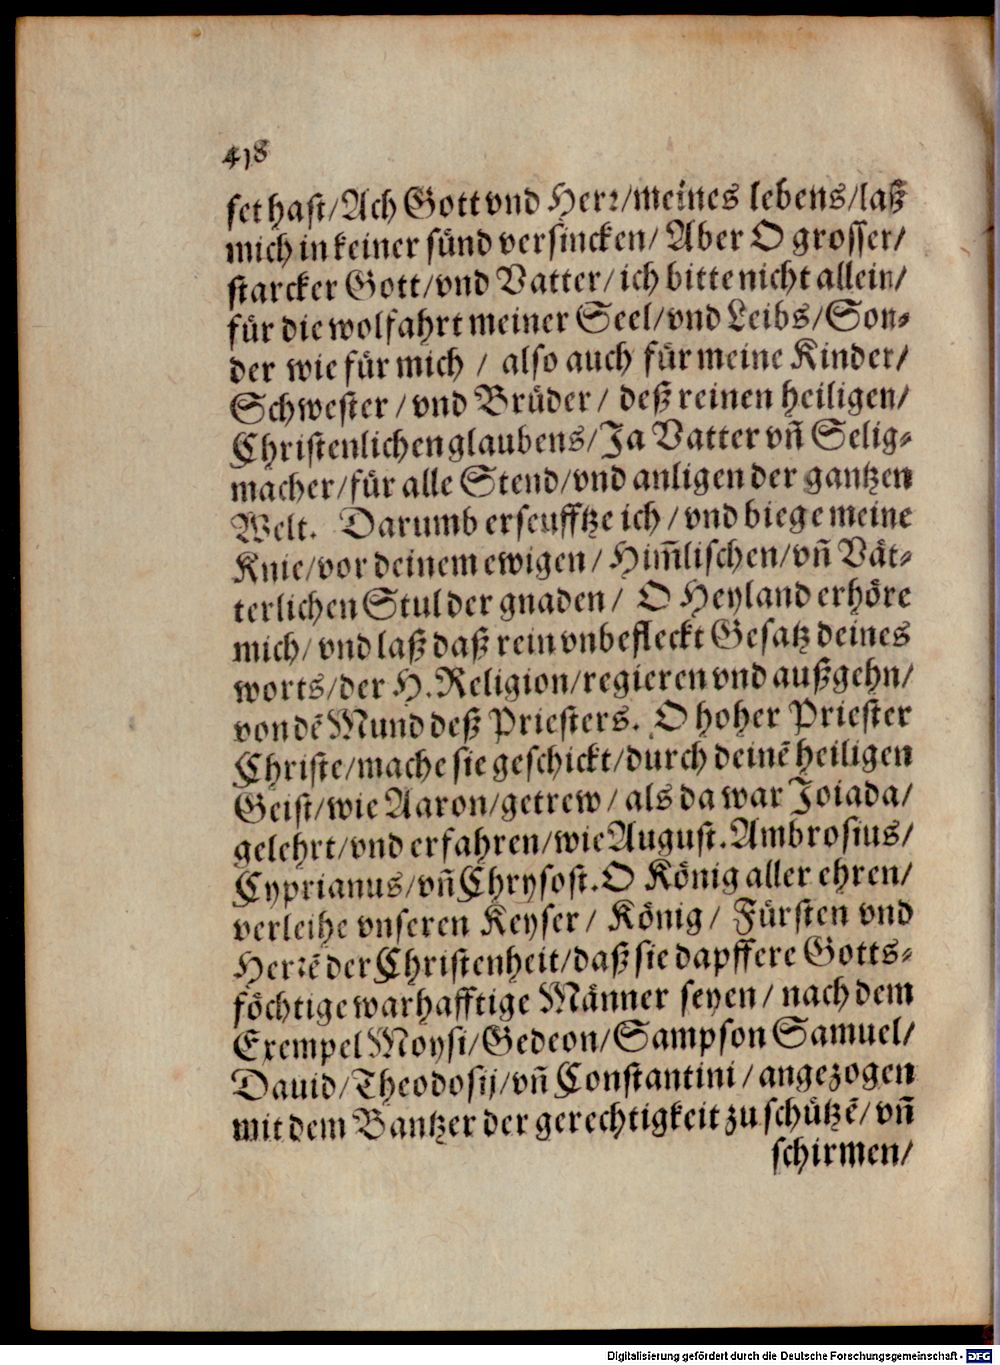 418
set hast/Ach Gott vnd Herr/meines lebens/laß
mich in keiner sünd versincken/ Aber O grosser/
starcker Gott/vnd Vatter/ich bitte nicht allein/
für die wolfahrt meiner Seel/vnd Leibs/Son⸗
der wie für mich / also auch für meine Kinder/
Schwester/vnd Brüder/ deß reinen heiligen/
Christenlichen glaubens/Ja Vatter vñ Selig⸗
macher/für alle Stend/vnd anligen der gantzen
Welt. Darumb erseufftze ich/vnd biege meine
Knie/vor deinem ewigen/ Him̃lischen/vñ Våt⸗
terlichen Stul der gnaden/ O Heyland erhöre
mich/vnd laß daß rein vnbefleckt Gesatz deines
worts/der H. Religion/regieren vnd außgehn/
von dẽ Mund deß Priesters. O hoher Priester
Christe/mache sie geschickt/durch deinẽ heiligen
Geist/wie Aaron/getrew/als da war Joiada/
gelehrt/vnd erfahren/wie August. Ambrosius/
Cyprianus/vñ Chrysost. O König aller ehren/
verleihe vnseren Keyser/ König/ Fürsten vnd
Herrẽ der Christenheit/daß sie dapffere Gotts⸗
föchtige warhafftige Männer seyen/nach dem
Exempel Moysi/Gedeon/Sampson Samuel/
Dauid/Theodosij/vñ Constantini/angezogen
mit dem Bantzer der gerechtigkeit zu schützẽ/vñ
schirmen/
Digitalisierung gefördert durch die Deutsche Forschungsgemeinschaft - DFG